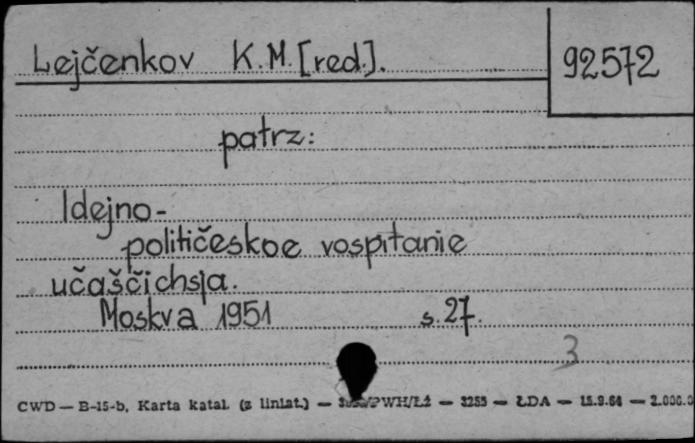 Lejčenkov K.M. [red.].
92572
patrz:
Idejno-
političeskoe vospitanie
učaščichsja.
Moskva 1951 s. 27.
3
CWD — B-15-b, Karta katal. (z liniat.) — — 3255 — ŁDA — 15.9.64 — 2.000.0